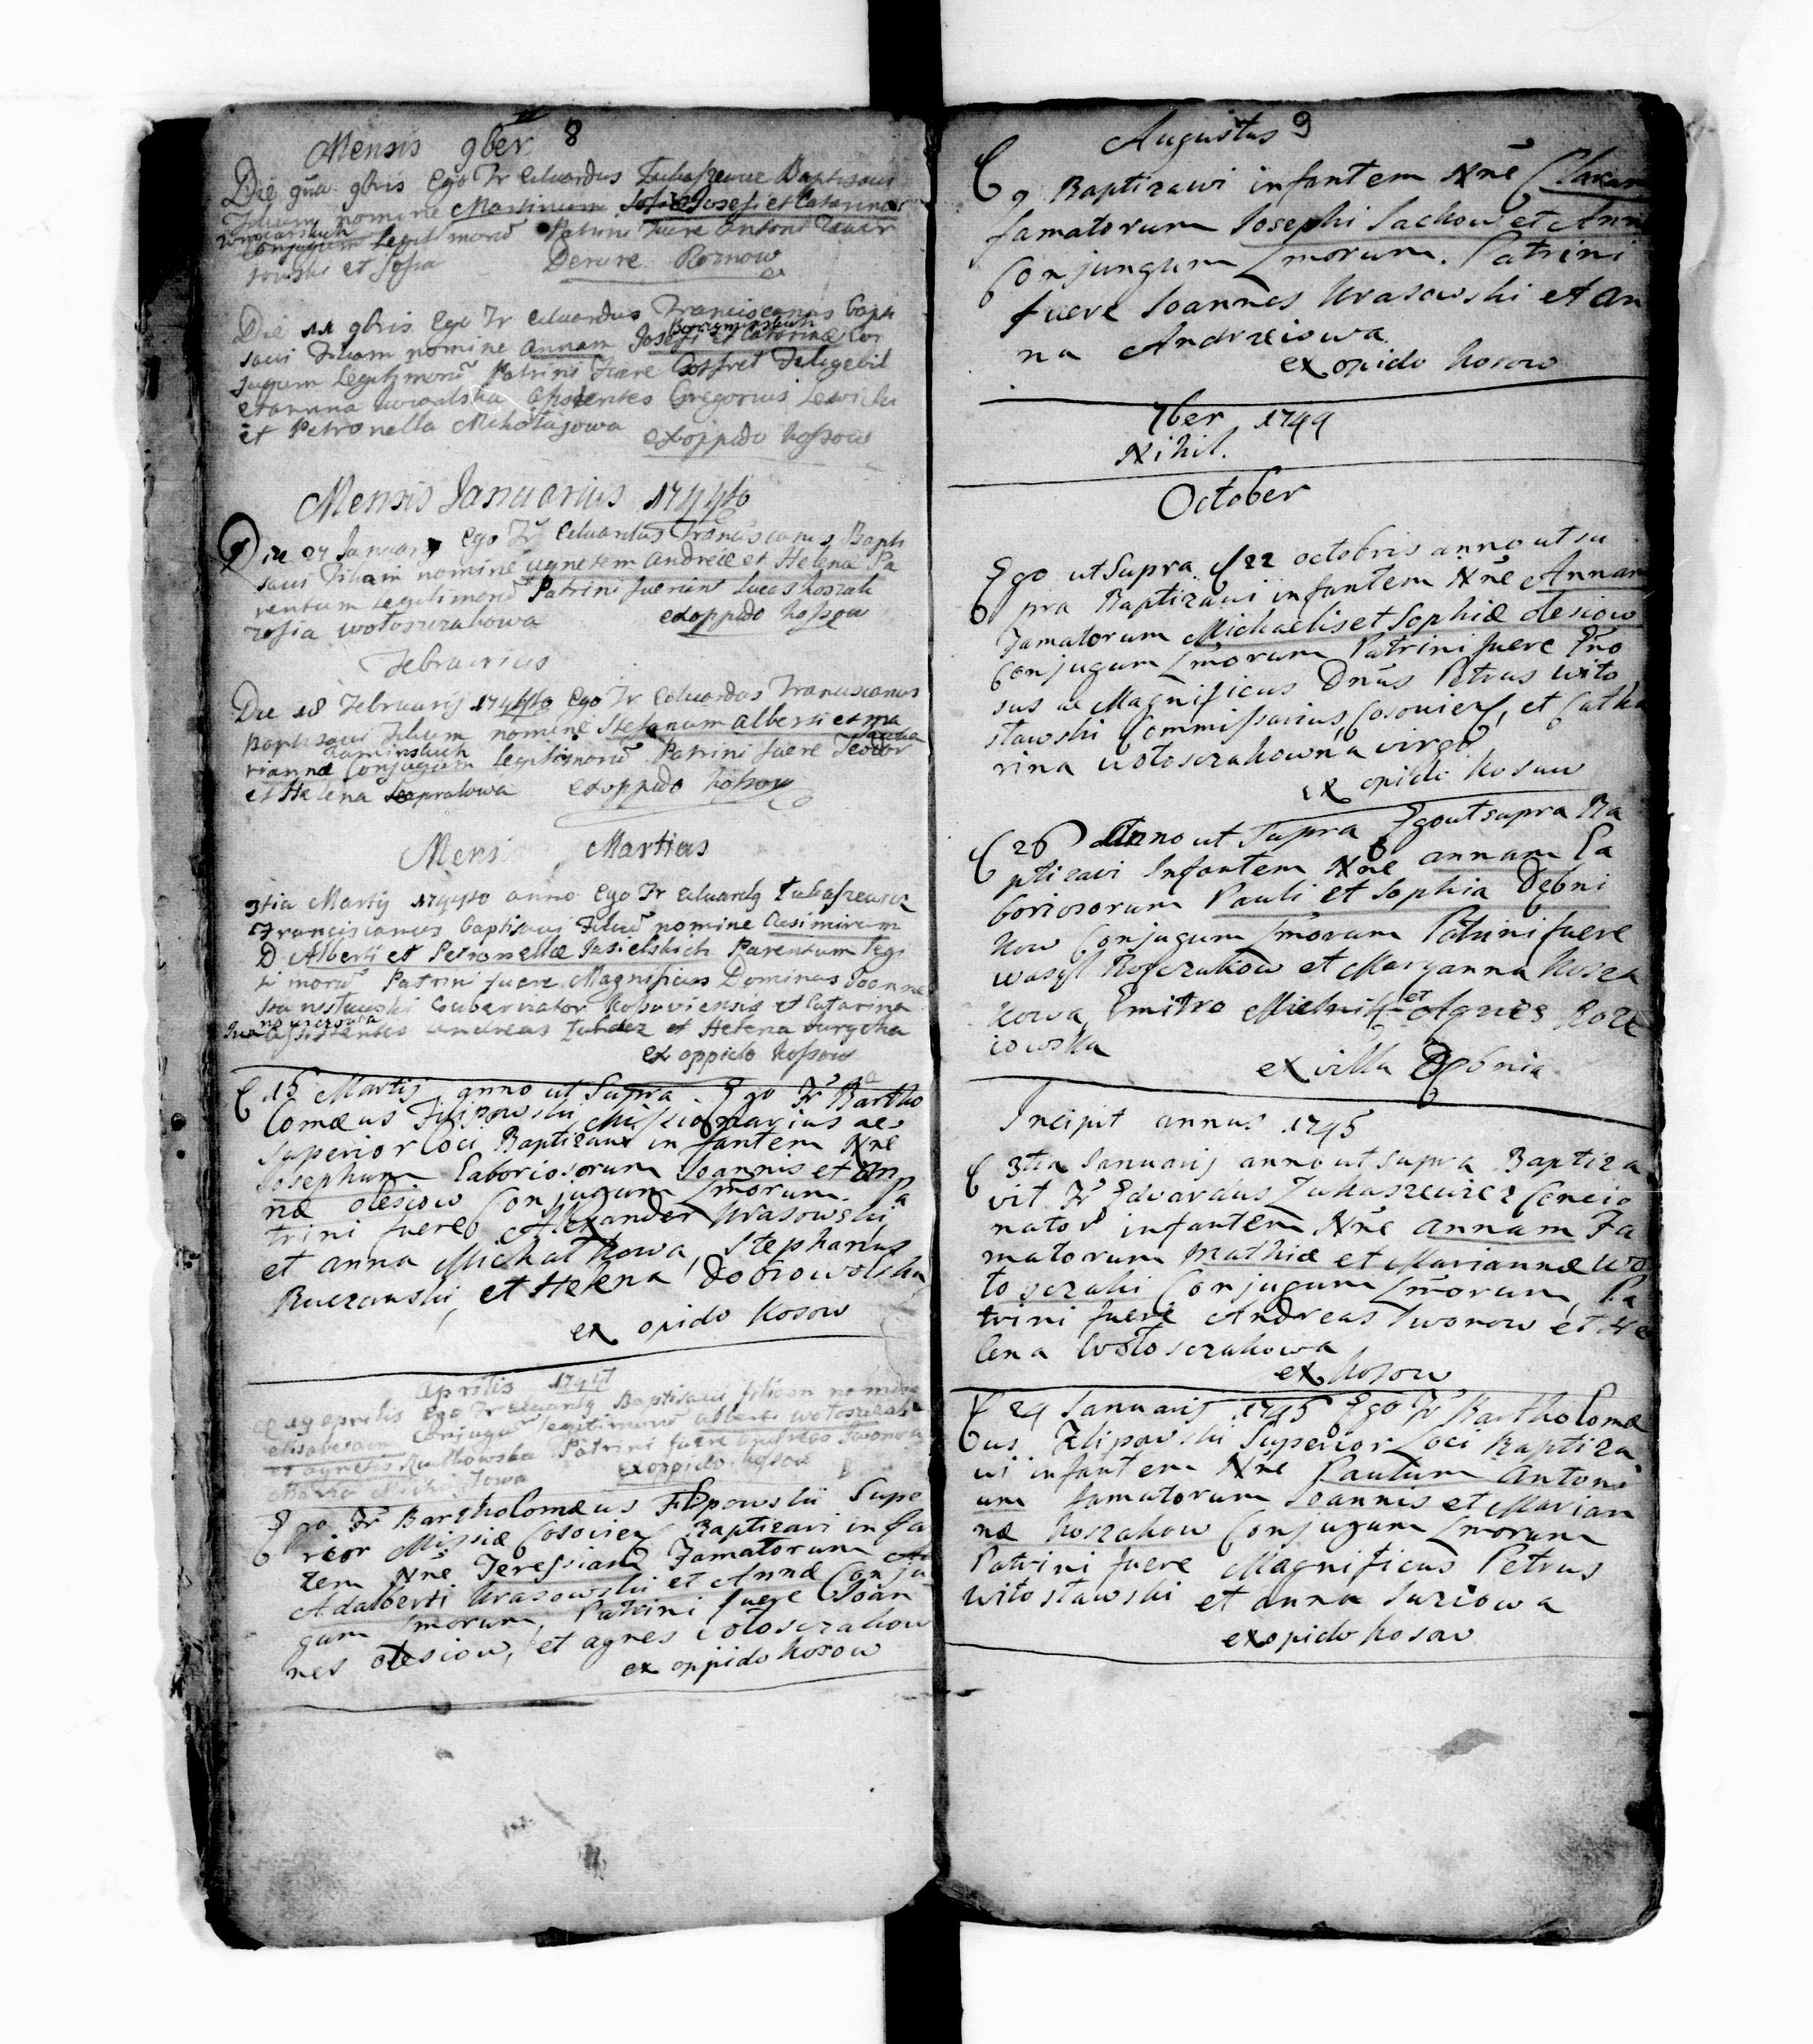 8
Mensis 9ber
Die 9na 9bris Ego Fr Eduardus Łukaszewic Baptisavi
Filium nomine Martinum Josefi et Catarinæ
Conjugum Legitimorũ Patrini Fuere Antoni
et Sofia Derere Roznow
Die 11 9bris Ego Fr Eduardus Franciscanus bapti
savi Filiam nomine Annam Josefi et Catarinæ Con
jugum Legitimorũ Patrini Fuere Gosfret
et anna kowalska Asistentes Gregorius Lewicki
et Petronella Mikołajowa
ex oppido kossow
Mensis Januarius 1744to
Die 27 Januarij Ego Fr Eduardus Franciscanus Bapti
savi Filiam nomine agnetem andreæ et Helena Pa
rentum Legitimorũ Patrini fuerunt Lucas koszak
zofia wołoszczakowa ex oppido kossow
Februarius
Die 18 Februarij 1744to Ego Fr Eduardus Franciscanus
Baptisavi Filium nomine Stefanum alberti et ma
Kaminskich
riannæ Conjugum Legitimorũ Patrini fuere Teodor
et Helena ex oppido kossow
Mens Martius
3tia Martij 1744to anno Ego Fr Eduardg Łukaszewicz
Franciscanus baptisavi Filiũ nomine Casimirum
D Alberti et Petronellæ Jasielskich Parentum legi
ti morũ Patrini fuere Magnificus Dominus Joannes
Stanisławski Gubernator kossoviensis et Catarina
Assistentes Andreas et Helena
ex oppido kossow
15 Martij anno ut Supra Ego Fr Bartho
lomæus Filipowski Missionarius ac
superior loci Baptizavi infantem Nñe
Josephum laboriosorum Joannis et An
næ olesiow Conjugum Lm̃orum. Pa
trini fuere Alexander Urasowski,
et anna Michałkowa, Stephanus
Ruczanski, et Helena Dobrowolska,
ex opido Kosow
Aprilis 1744
Aprilis Ego Fr Eduardg Baptisavi filiam nomine
elisabetam Conjugũ legitimorũ alberti wołoszczak
et agnetis Rutkowska Patrini fuere andreas Iwonow
ex oppido kossow
Ego Fr Bartholomæus Filipowski Supe
rior Missiæ Cosovien Baptizavi infa
tem Nñe Teressiam Famatorum
Adalberti Urasowski et Annæ Conju
gum Lm̃orum, Patrini fuere Joan
nes olesiow, et agnes wołoszczakow
ex oppido kosow
9
Augustus
9 Baptizavi infantem Nñe Claram
famatorum Josephi Sackow et Ann
Conjungum Lmorum. Patrini
fuere Joannes Urasowski et An
na Andrzeiowa
ex opido kosow
7ber 1744
Nihil.
October
Ego ut Supra 22 octobris anno ut su
pra Baptizavi infantem Nñe Annam
Famatorum Michaelis et Sophiæ olesiow
Conjugum Lm̃orum Patrini fuere
sus ac Magnificus Dñus Petrus wito
sławski Commissarius Cosovien, et Catha
rina wołoszczakowna virgo,
ex opido kosow
26 Anno ut Supra Ego ut supra Ba
ptizavi Infantem Nñe annam La
boriosorum Pauli et Sophia Dębni
kow Conjugum Lm̃orum Patrini fuere
wasyl et Maryanna kosza
kowa, Dmitro Mielnik et Agnes
iowska
ex villa Dębnia
Incipit annus 1745
3tia Januarij anno ut supra Baptiza
vit Fr Edvardus Łukaszewicz Concio
nator infantem Nñe annam Fa
matorum Mathiæ et Mariannæ wo
łoszczaki Conjugum Lm̃orum, Pa
trini fuere Andreas Iwonow et He
lena wołoszczakowa
ex kosow
24 Januarij 1745 Ego Fr Bartholomæ
us Filipowski Superior Loci Baptiza
vi infantem Nñe Paulum Antoni
um famatorum Joannis et Marian
næ koszakow Conjugum Lmorum
Patrini fuere Magnificus Petrus
witosławski et anna Juziowa
ex opido kosow